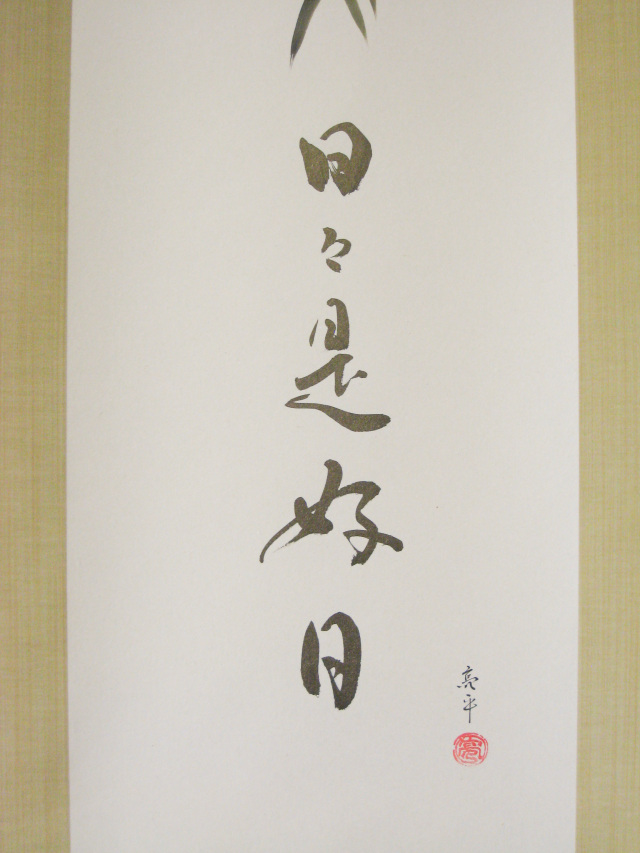 日々是好日
亮平